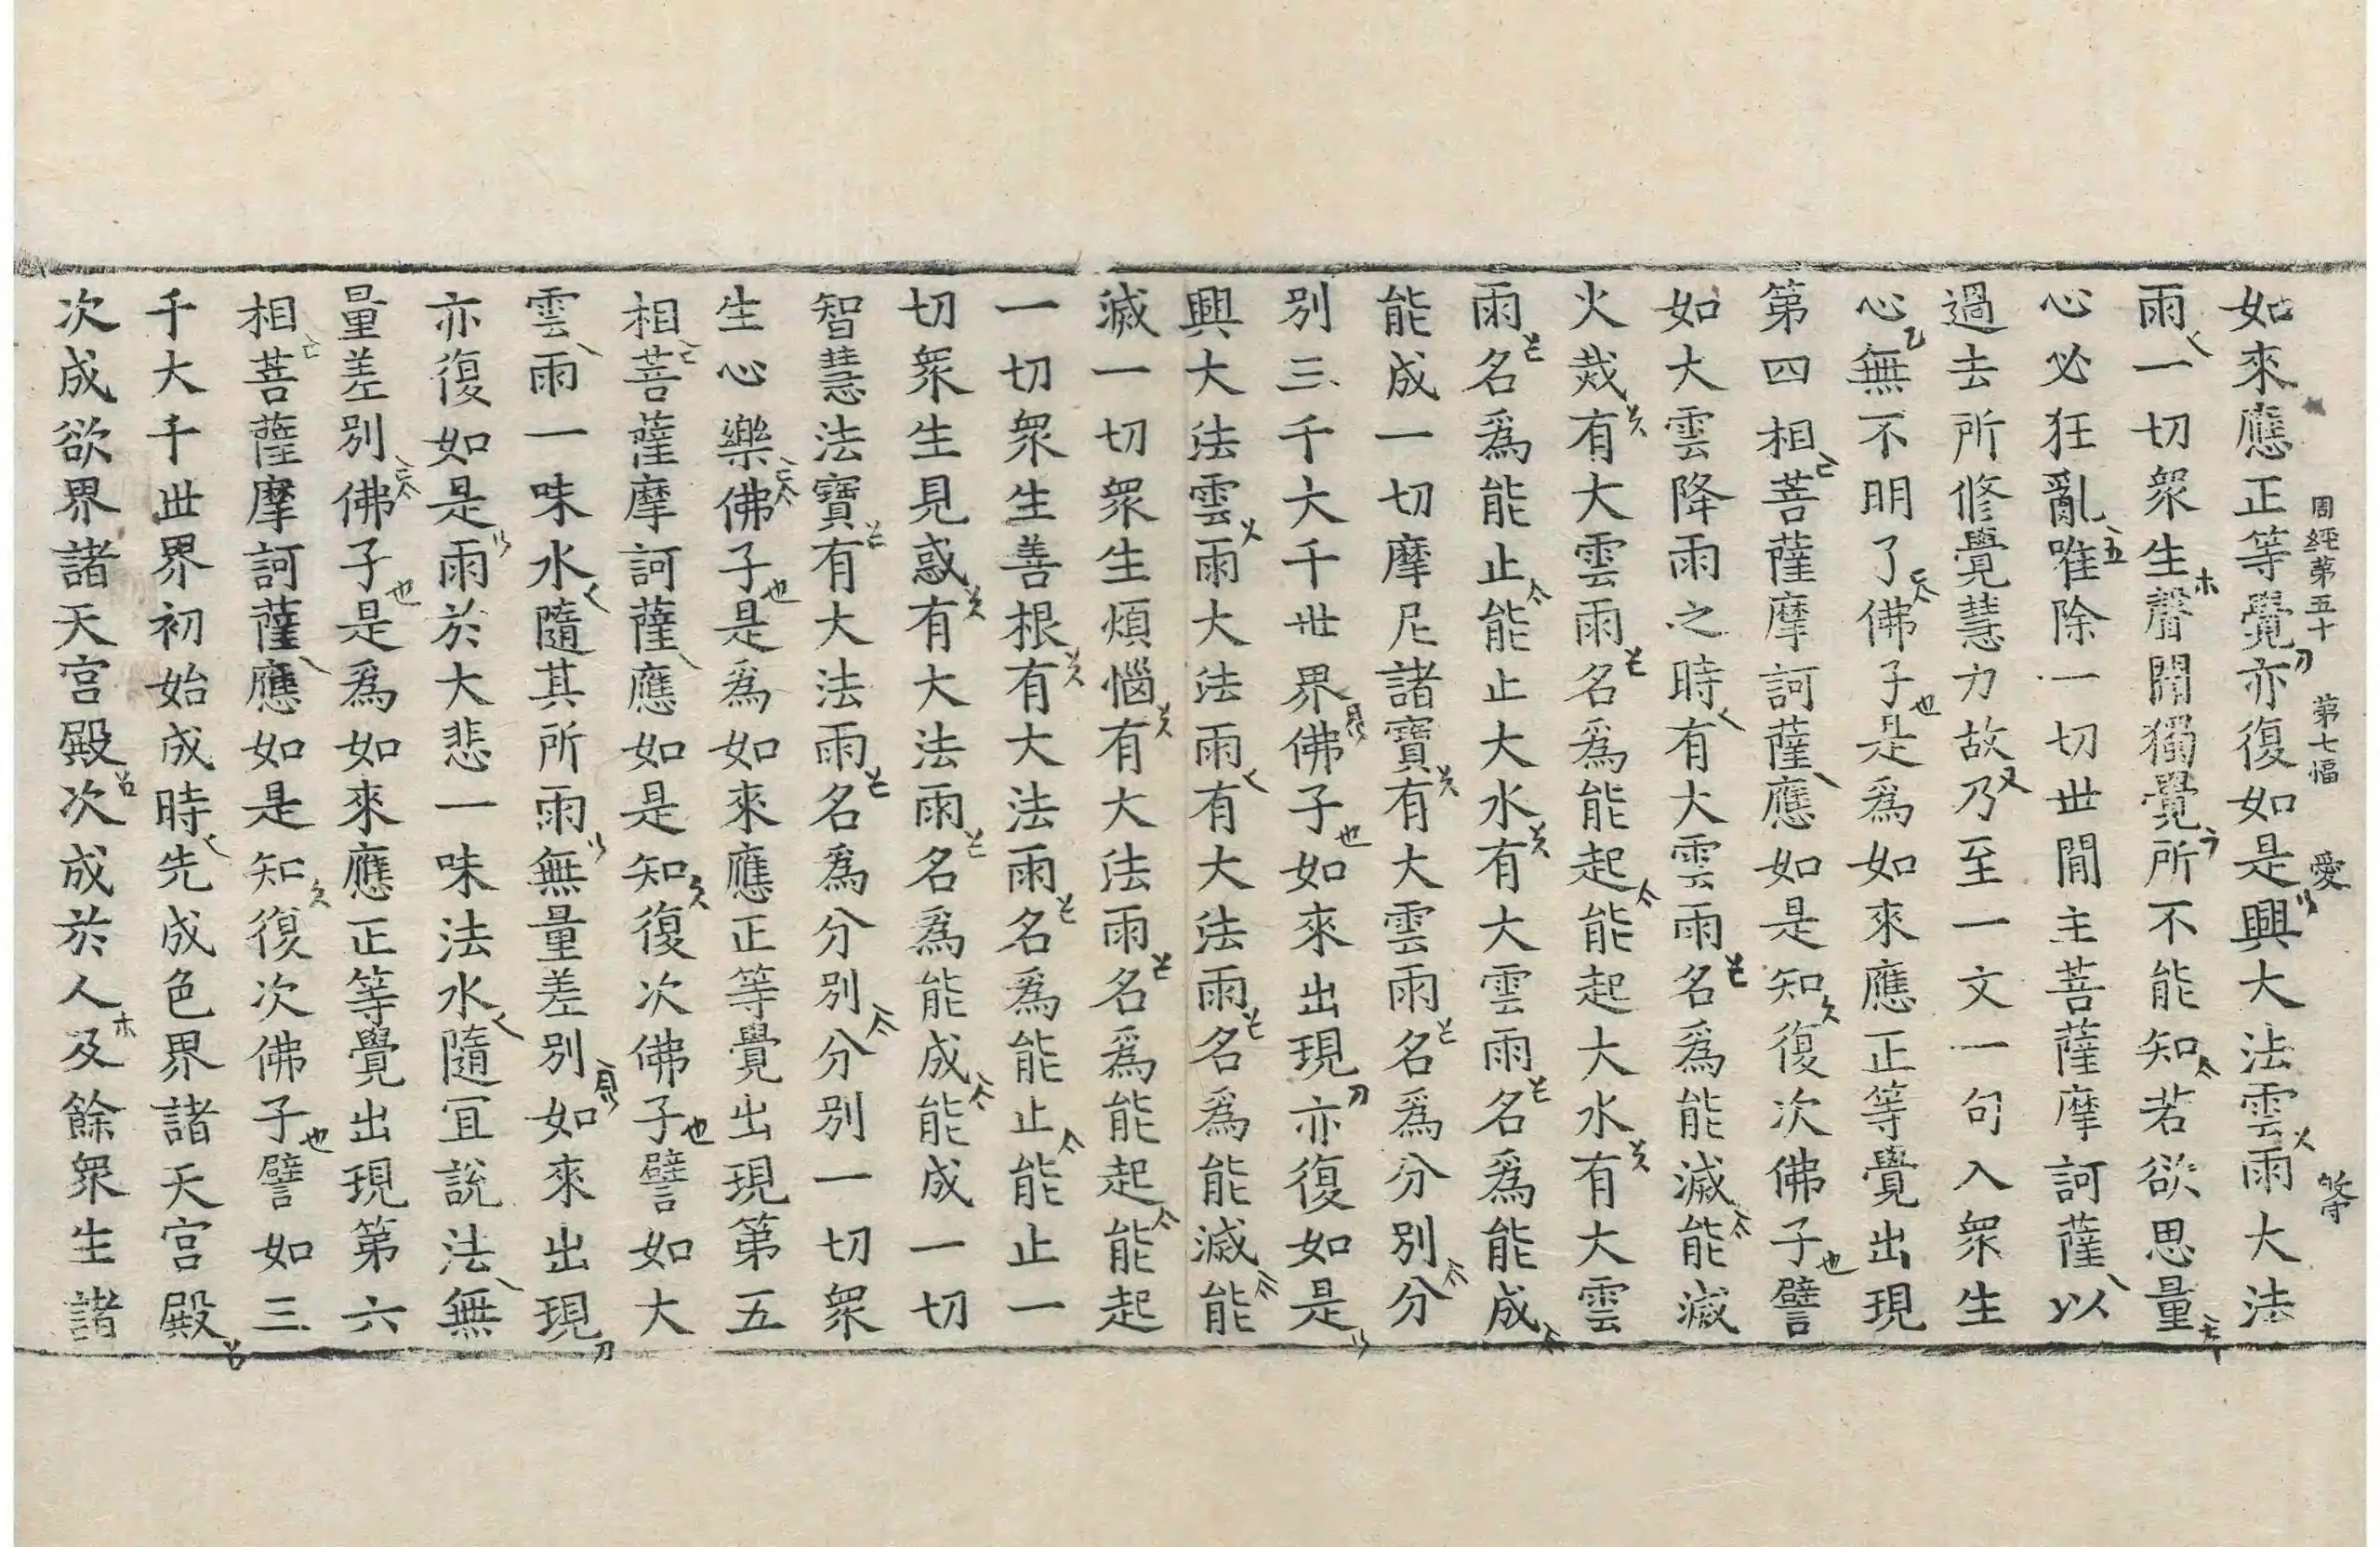 周經第五十 第七幅 愛 等
如來應正等覺亦復如是興大法雲雨大法
雨一切衆生聲聞獨覺所不能知若欲思量
心必狂亂唯除一切世閒主菩薩摩訶薩以
過去所修覺慧力故乃至一文一句入衆生
心無不明了佛子是爲如來應正等覺出現
第四相菩薩摩訶薩應如是知復次佛子譬
如大雲降雨之時有大雲雨名爲能滅能滅
火烖有大雲雨名爲能起能起大水有大雲
雨名爲能止能止大水有大雲雨名爲能成
能成一切摩尼諸寶有大雲雨名爲分別分
別三千大千世界佛子如來出現亦復如是
興大法雲雨大法雨有大法雨名爲能滅能
滅一切衆生煩惱有大法雨名爲能起能起
一切衆生善根有大法雨名爲能止能止一
切衆生見惑有大法雨名爲能成能成一切
智慧法寶有大法雨名爲分別分別一切衆
生心樂佛子是爲如來應正等覺出現第五
相菩薩摩訶薩應如是知復次佛子譬如大
雲雨一味水隨其所雨無量差別如來出現
亦復如是雨於大悲一味法水隨冝說法無
量差別佛子是爲如來應正等覺出現第六
相菩薩摩訶薩應如是知復次佛子譬如三
千大千世界初始成時先成色界諸天宮殿
次成欲界諸天宮殿次成於人及餘衆生諸